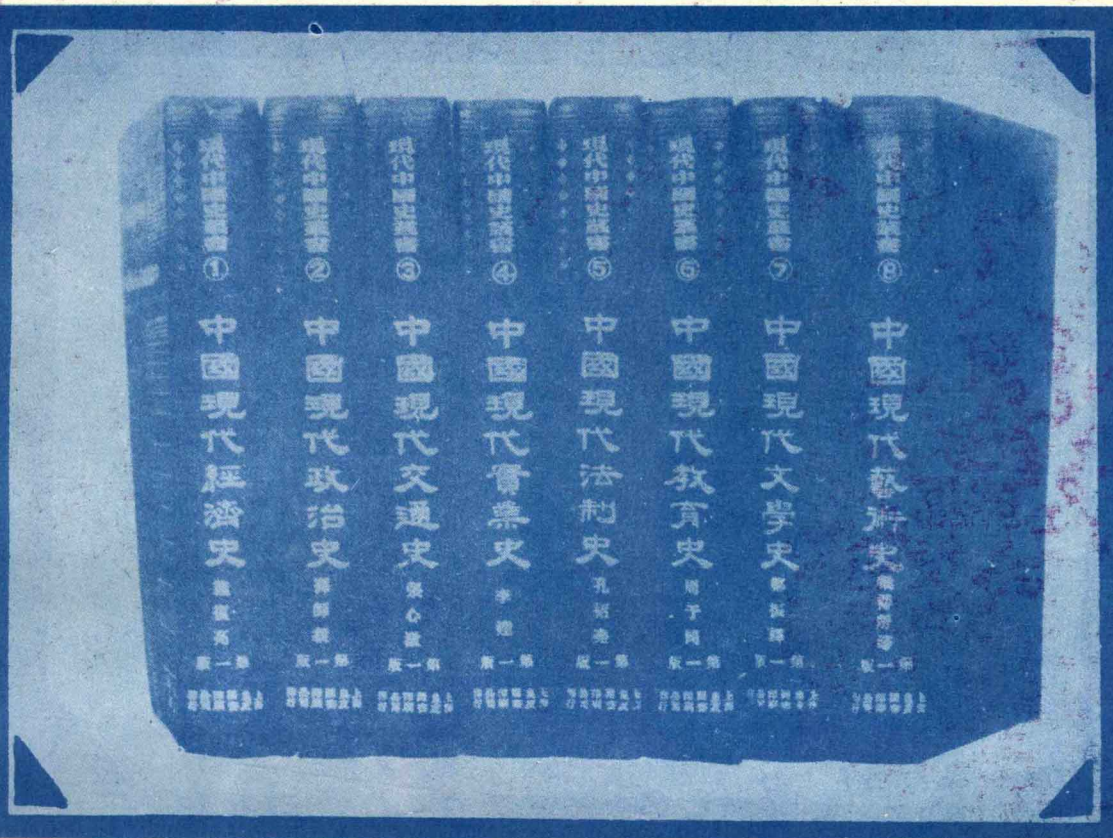 現代中國史叢書①
中國現代經濟史
第一版
現代中國史叢書②
中國現代政治史
第一版
現代中國史叢書③
中國現代交通史
張心澂
第一版
現代中國史叢書④
中國現代實業史
第一版
現代中國史叢書⑤
中國現代法制史
第一版
現代中國史叢書⑥
中國現代教育史
周予同
第一版
現代中國史叢書⑦
中國現代文學史
鄭振鐸
第一版
現代中國史叢書⑧
中國現代藝術史
第一版